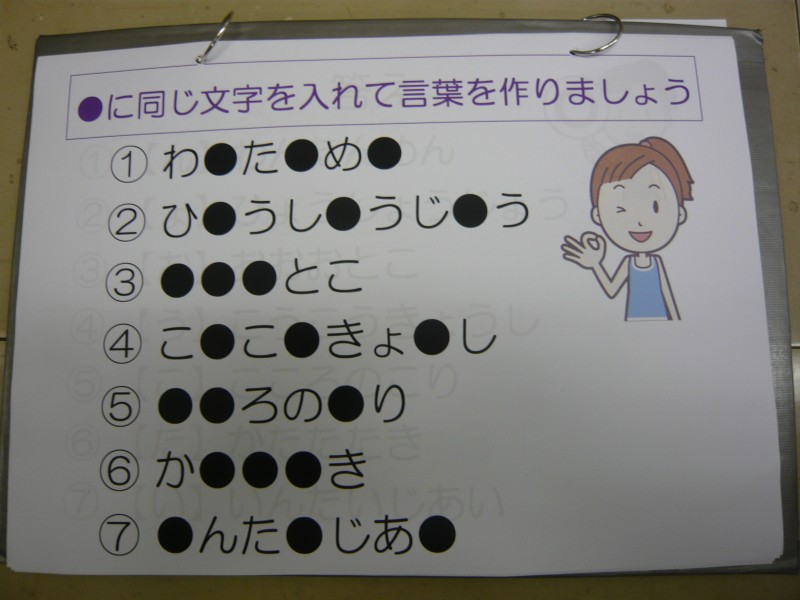 ●に同じ文字を入れて言葉を作りましょう
① わ●た●め●
② ひ●うし●うじ●う
③ ●●●とこ
④ こ●こ●きょ●し
⑤ ●●ろの●り
⑥ か●●●き
⑦ ●んた●じあ●